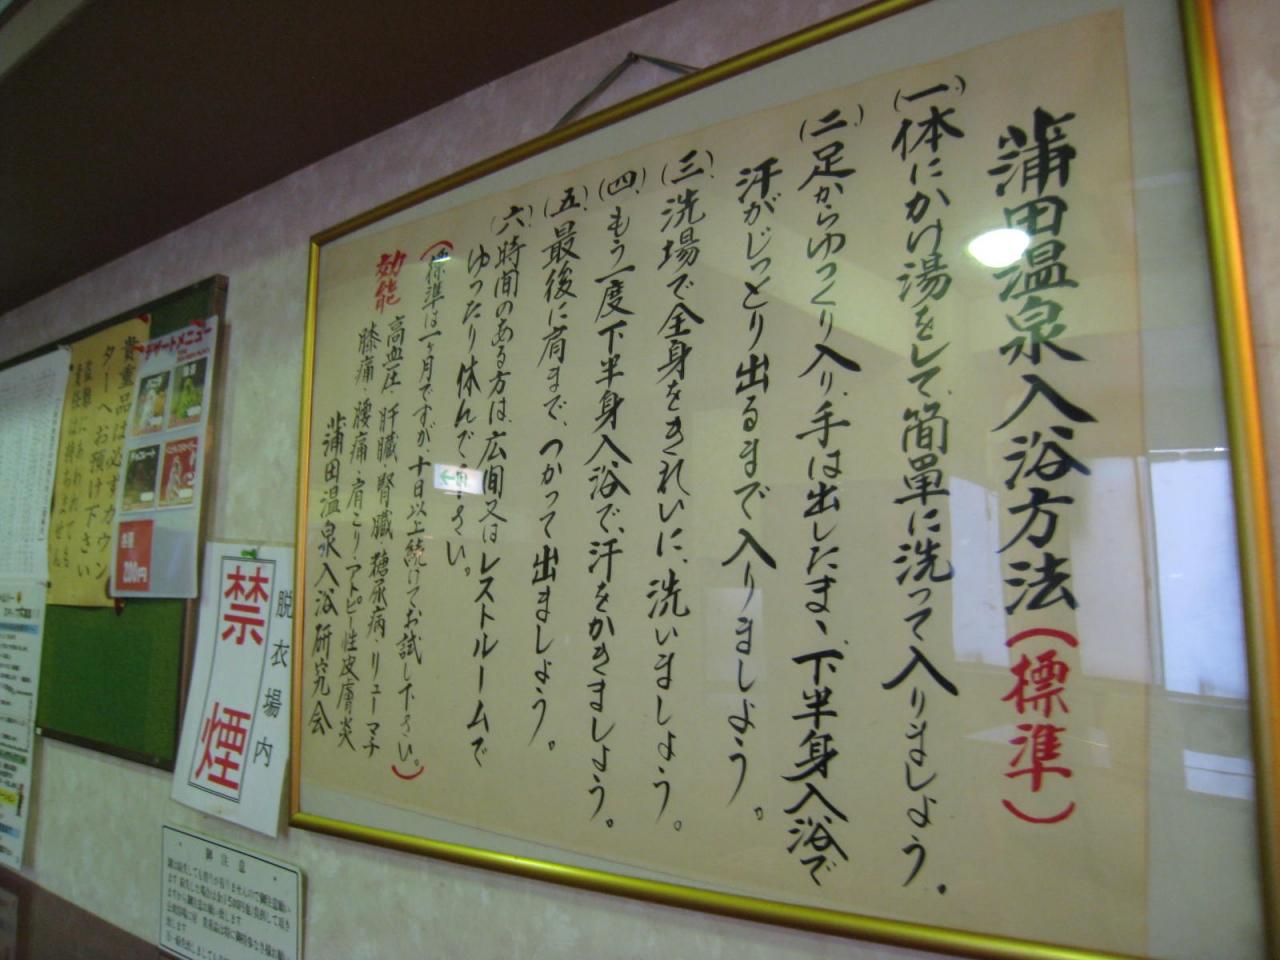 蒲田温泉入浴方法(標準)
(一)体にかけ湯をして簡単に洗って入りましょう。
(二)足からゆっくり入り、手は出したまゝ、下半身入浴で
汗がじっとり出るまで入りましょう。
(三)洗場で全身をきれいに、洗いましょう。
(四)もう一度下半身入浴で、汗をかきましょう。
(五)最後に肩まで、つかって出ましょう。
(六)時間のある方は、広間又はレストルームで
ゆったり休んで下さい。
(標準は一ヶ月ですが、十日以上続けてお試し下さい。)
効能
高血圧・肝臓・腎臓・糖尿病・リューマチ
膝痛・腰痛・肩こり・アトピー性皮膚炎
蒲田温泉入浴研究会
脱衣場内
禁煙
デザートメニュー
各種
200円
貴重品は必ずカウン
ターへお預け下さい
盗難にあわれても
責任は持ちません
御注意